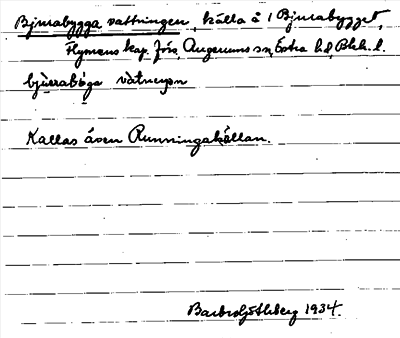 Bjurabygga vattningen, källa å 1 Bjurabygget,
Flymens kap. förs, Augerums sn, Östra hd, Blek. l.
bju̇rraböga vàtneŋen
Kallas även Runningakällan.
Barbro Göthberg 1934.